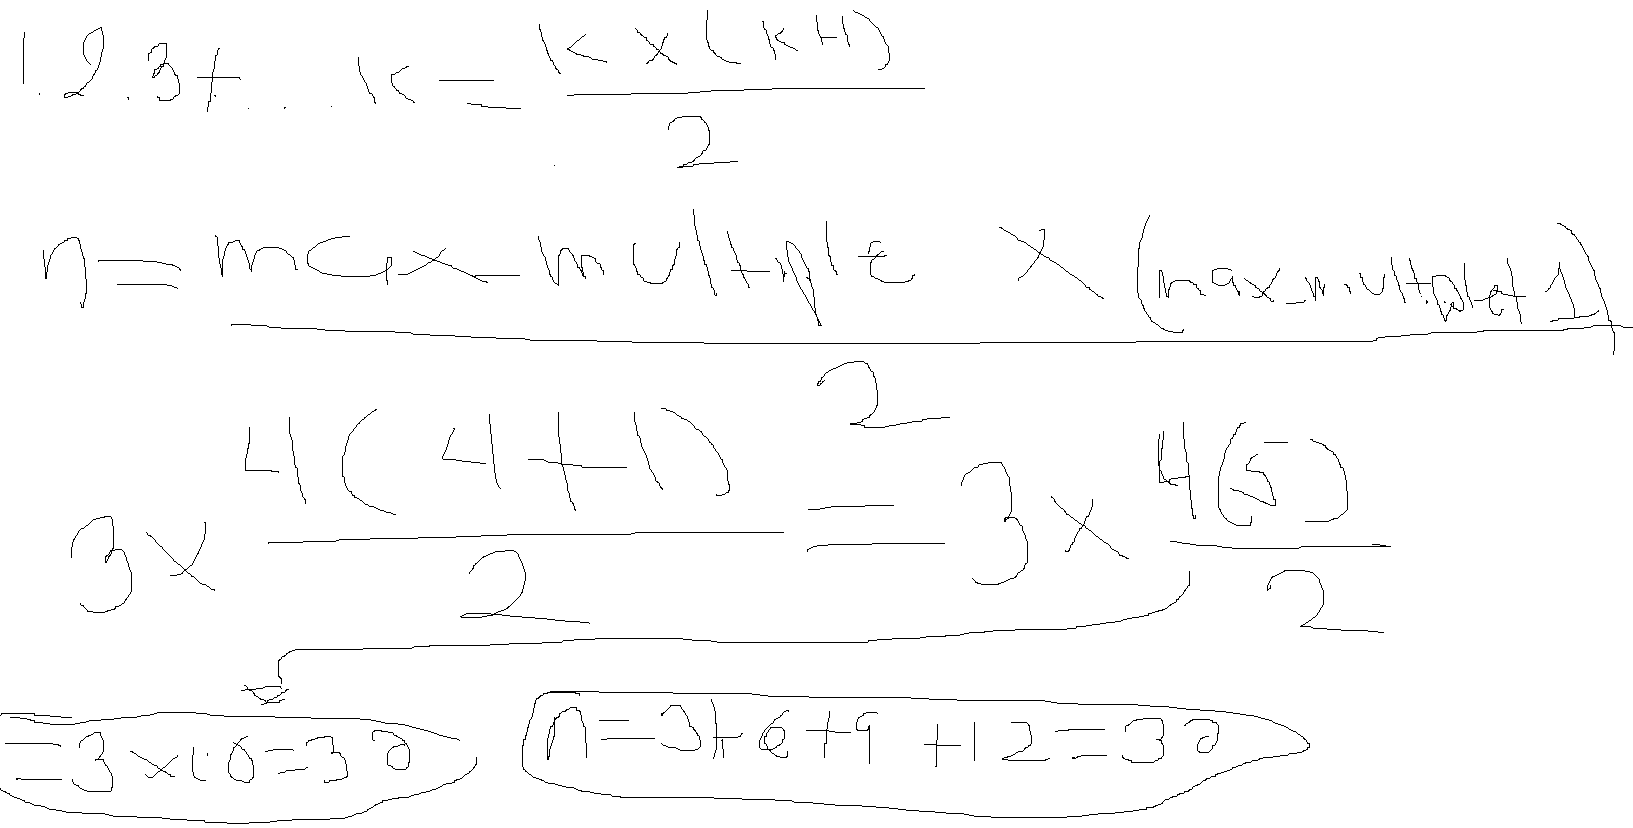 1.2.3+...k=k×(k+1)/2
n=max_multiple×(max_multiple+1)/2
3×4(4+1)/2=3×4(5)/2
=3×10=30
n=3+6+9+12=30